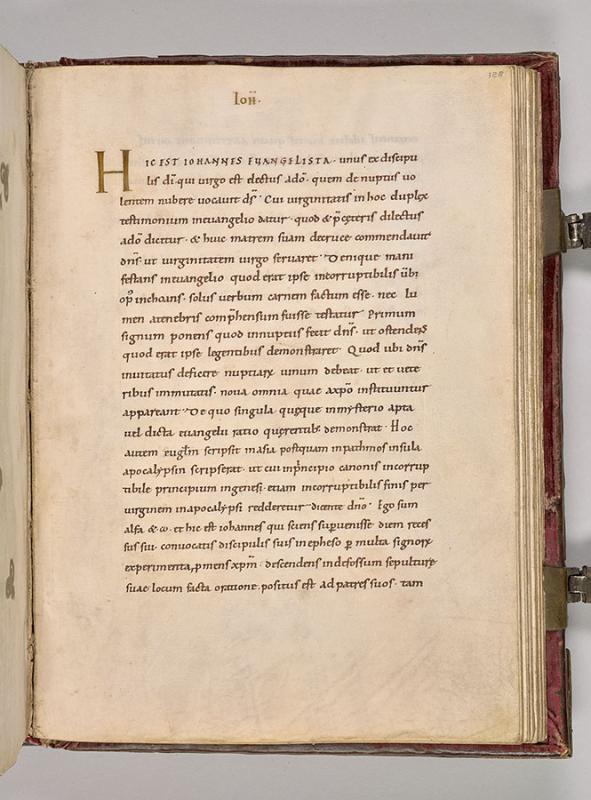 128
Ioh̄.
HIC EST IOHANNES EUANGELISTA. unus ex discipu
lis dī. qui uirgo est electus adō. quem de nuptus uo
lentem nubere uocauit dṡ. Cui uirginitatis in hoc duplex
testimonium ineuangelio datur. quod & p̄ceteris dilectus
adō dicitur. & huic matrem suam decruce commendauit
dn̄s. ut uirginitatem uirgo seruaret. Denique mani
festans ineuangelio quod erat ipse incorruptibilis ūbi
op̄ inchoans. solus uerbum carnem factum esse. nec lu
men atenebris comp̄hensum fuisse testatur. Primum
signum ponens quod innuptiis fecit dn̄s. ut ostenderꝭ
quod erat ipse legentibus demonstraret. Quod ubi dn̄s
inuitatus deficere nuptiarꝝ uinum debeat. ut et uete
ribus immutatis. noua omnia quae axp̄o instituuntur
appareant. De quo singula quęque inmysterio apta
uel dicta euangelii ratio querentibꝫ demonstrat. Hoc
autem euglm̄ scripsit inasia postquam inpathmos insula
apocalypsin scripserat. ut cui inp̄ncipio canonis incorrup
tibile principium ingenesi. etiam incorruptibilis finis per
uirginem inapocalypsi redderetur. dicente dn̄o. Ego sum
alfa & ω. et hic est iohannes qui sciens sup̄uenisse diem reces
sus sui. conuocatis discipulis suis inepheso ꝑ multa signorꝝ
experimenta, ꝓmens xpm̄. descendens indefossum sepulturę
suae locum facta oratione. positus est ad patres suos. tam